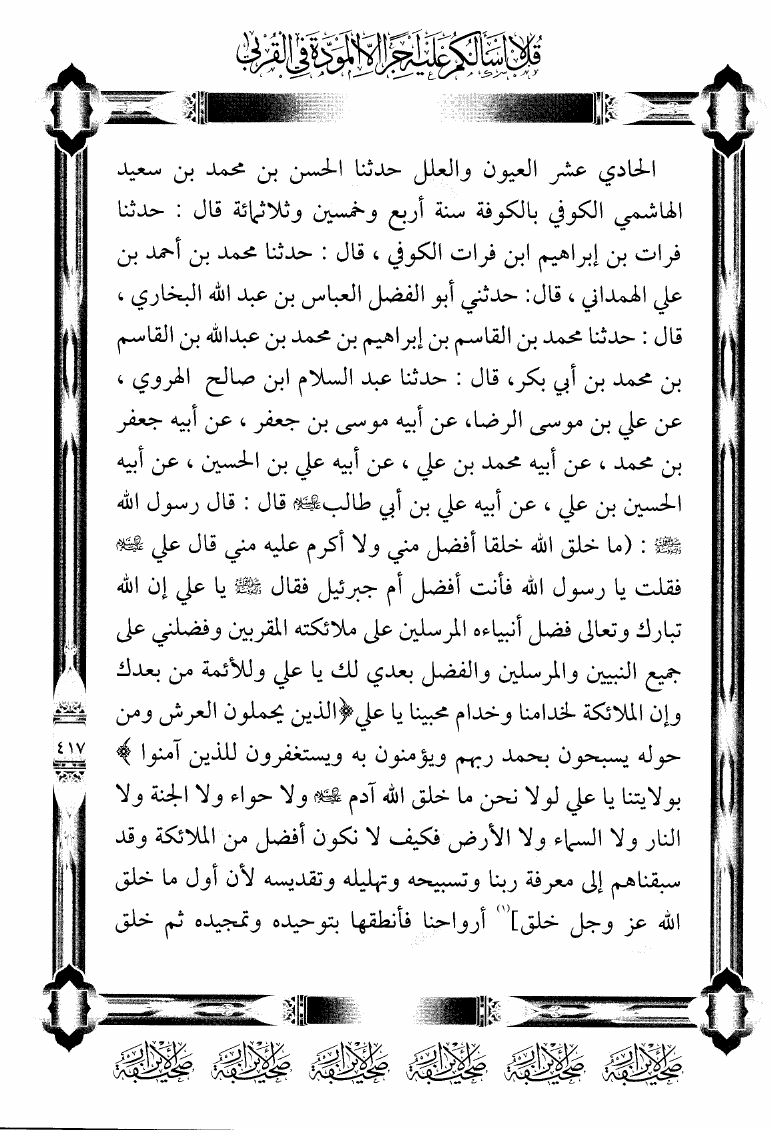 قل لا أسألكم عليه أجرا إلا المودة في القربى
الحادي عشر العيون والعلل حدثنا الحسن بن محمد بن سعيد
الهاشمي الكوفي بالكوفة سنة أربع وخمسين وثلاثمائة قال : حدثنا
فرات بن إبراهيم ابن فرات الكوفي ، قال : حدثنا محمد بن أحمد بن
علي الهمداني ، قال: حدثني أبو الفضل العباس بن عبد الله البخاري ،
قال : حدثنا محمد بن القاسم بن إبراهيم بن محمد بن عبدالله بن القاسم
بن محمد بن أبي بكر، قال : حدثنا عبد السلام ابن صالح الهروي ،
عن علي بن موسى الرضا، عن أبيه موسى بن جعفر ، عن أبيه جعفر
بن محمد ، عن أبيه محمد بن علي ، عن أبيه علي بن الحسين ، عن أبيه
الحسين بن علي ، عن أبيه علي بن أبي طالب قال : قال رسول الله
: (ما خلق الله خلقا أفضل مني ولا أكرم عليه مني قال علي
فقلت يا رسول الله فأنت أفضل أم جبرئيل فقال ﷺ يا علي إن الله
تبارك وتعالى فضل أنبياءه المرسلين على ملائكته المقربين وفضلني على
جميع النبيين والمرسلين والفضل بعدي لك يا علي وللأئمة من بعدك
وإن الملائكة لخدامنا وخدام محبينا يا علي ﴿الذين يحملون العرش ومن
حوله يسبحون بحمد ربهم ويؤمنون به ويستغفرون للذين آمنوا ﴾
بولايتنا يا علي لولا نحن ما خلق الله آدم ولا حواء ولا الجنة ولا
النار ولا السماء ولا الأرض فكيف لا نكون أفضل من الملائكة وقد
سبقناهم إلى معرفة ربنا وتسبيحه وتهليله وتقديسه لأن أول ما خلق
الله عز وجل خلق](١) أرواحنا فأنطقها بتوحيده وتمجيده ثم خلق
٤١٧